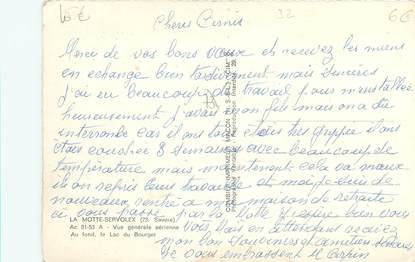 15€
32
6€
Chers Amis
Merci de vos bons vœux et recevez les miens
en échange bien tardivement mais sincères
j'ai eu beaucoup de travail pour m'installer
heureusement j'avais mon fils mais on a du
interrompre car ils ont tous été très grippés ils ont
étais couchés 3 semaines avec beaucoup de
température mais maintenant cela va mieux
ils on repris leurs travaux et moi je suis de
nouveau rentrée a ma maison de retraite
si vous passé par la Motte j'espère bien vous
voir, mais en attendant recevez
mon bon souvenirs et amitiés
de vous embrassent
LA MOTTE-SERVOLEX (73. Savoie)
Ac 01-53 A - Vue générale aérienne
Au fond, le Lac du Bourget
COMBIER IMPRIMEUR MACON